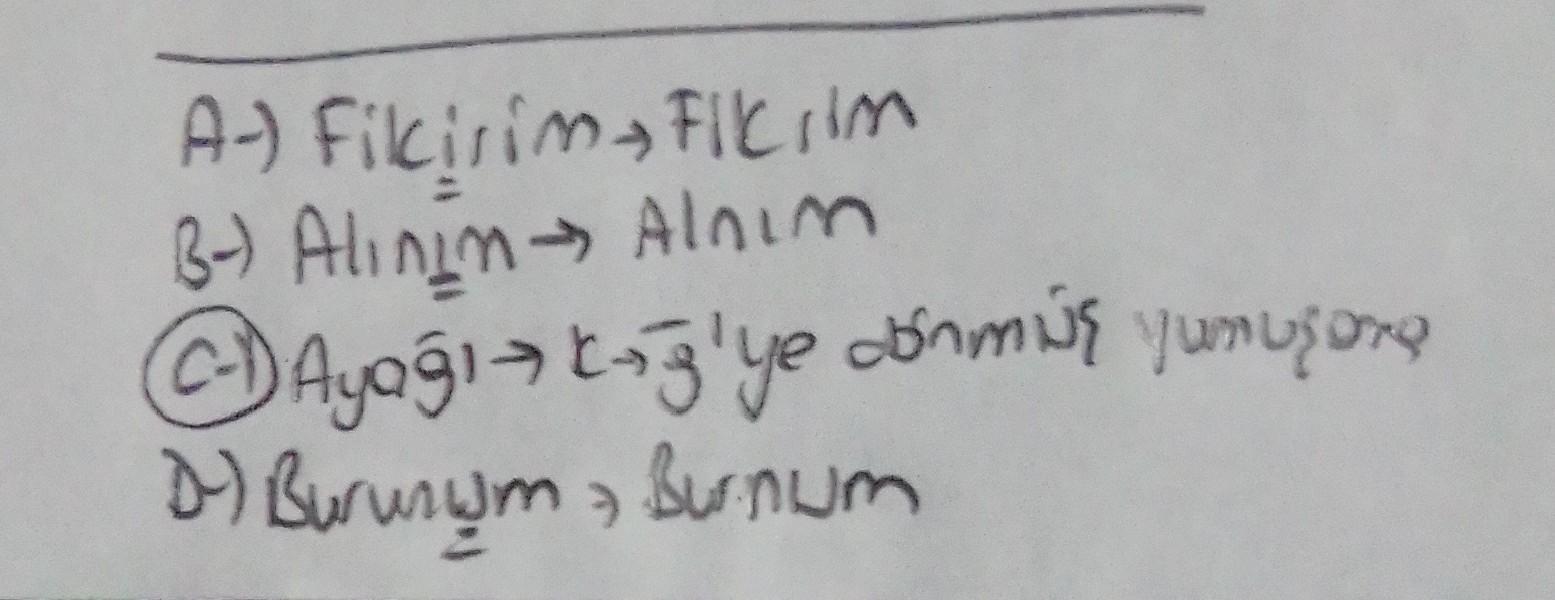 A-) Fikirim → Fikrim
B-) Alınım → Alnım
C-) Ayağı → k → ğ'ye dönmüş yumuşama
D-) Burunum → Burnum